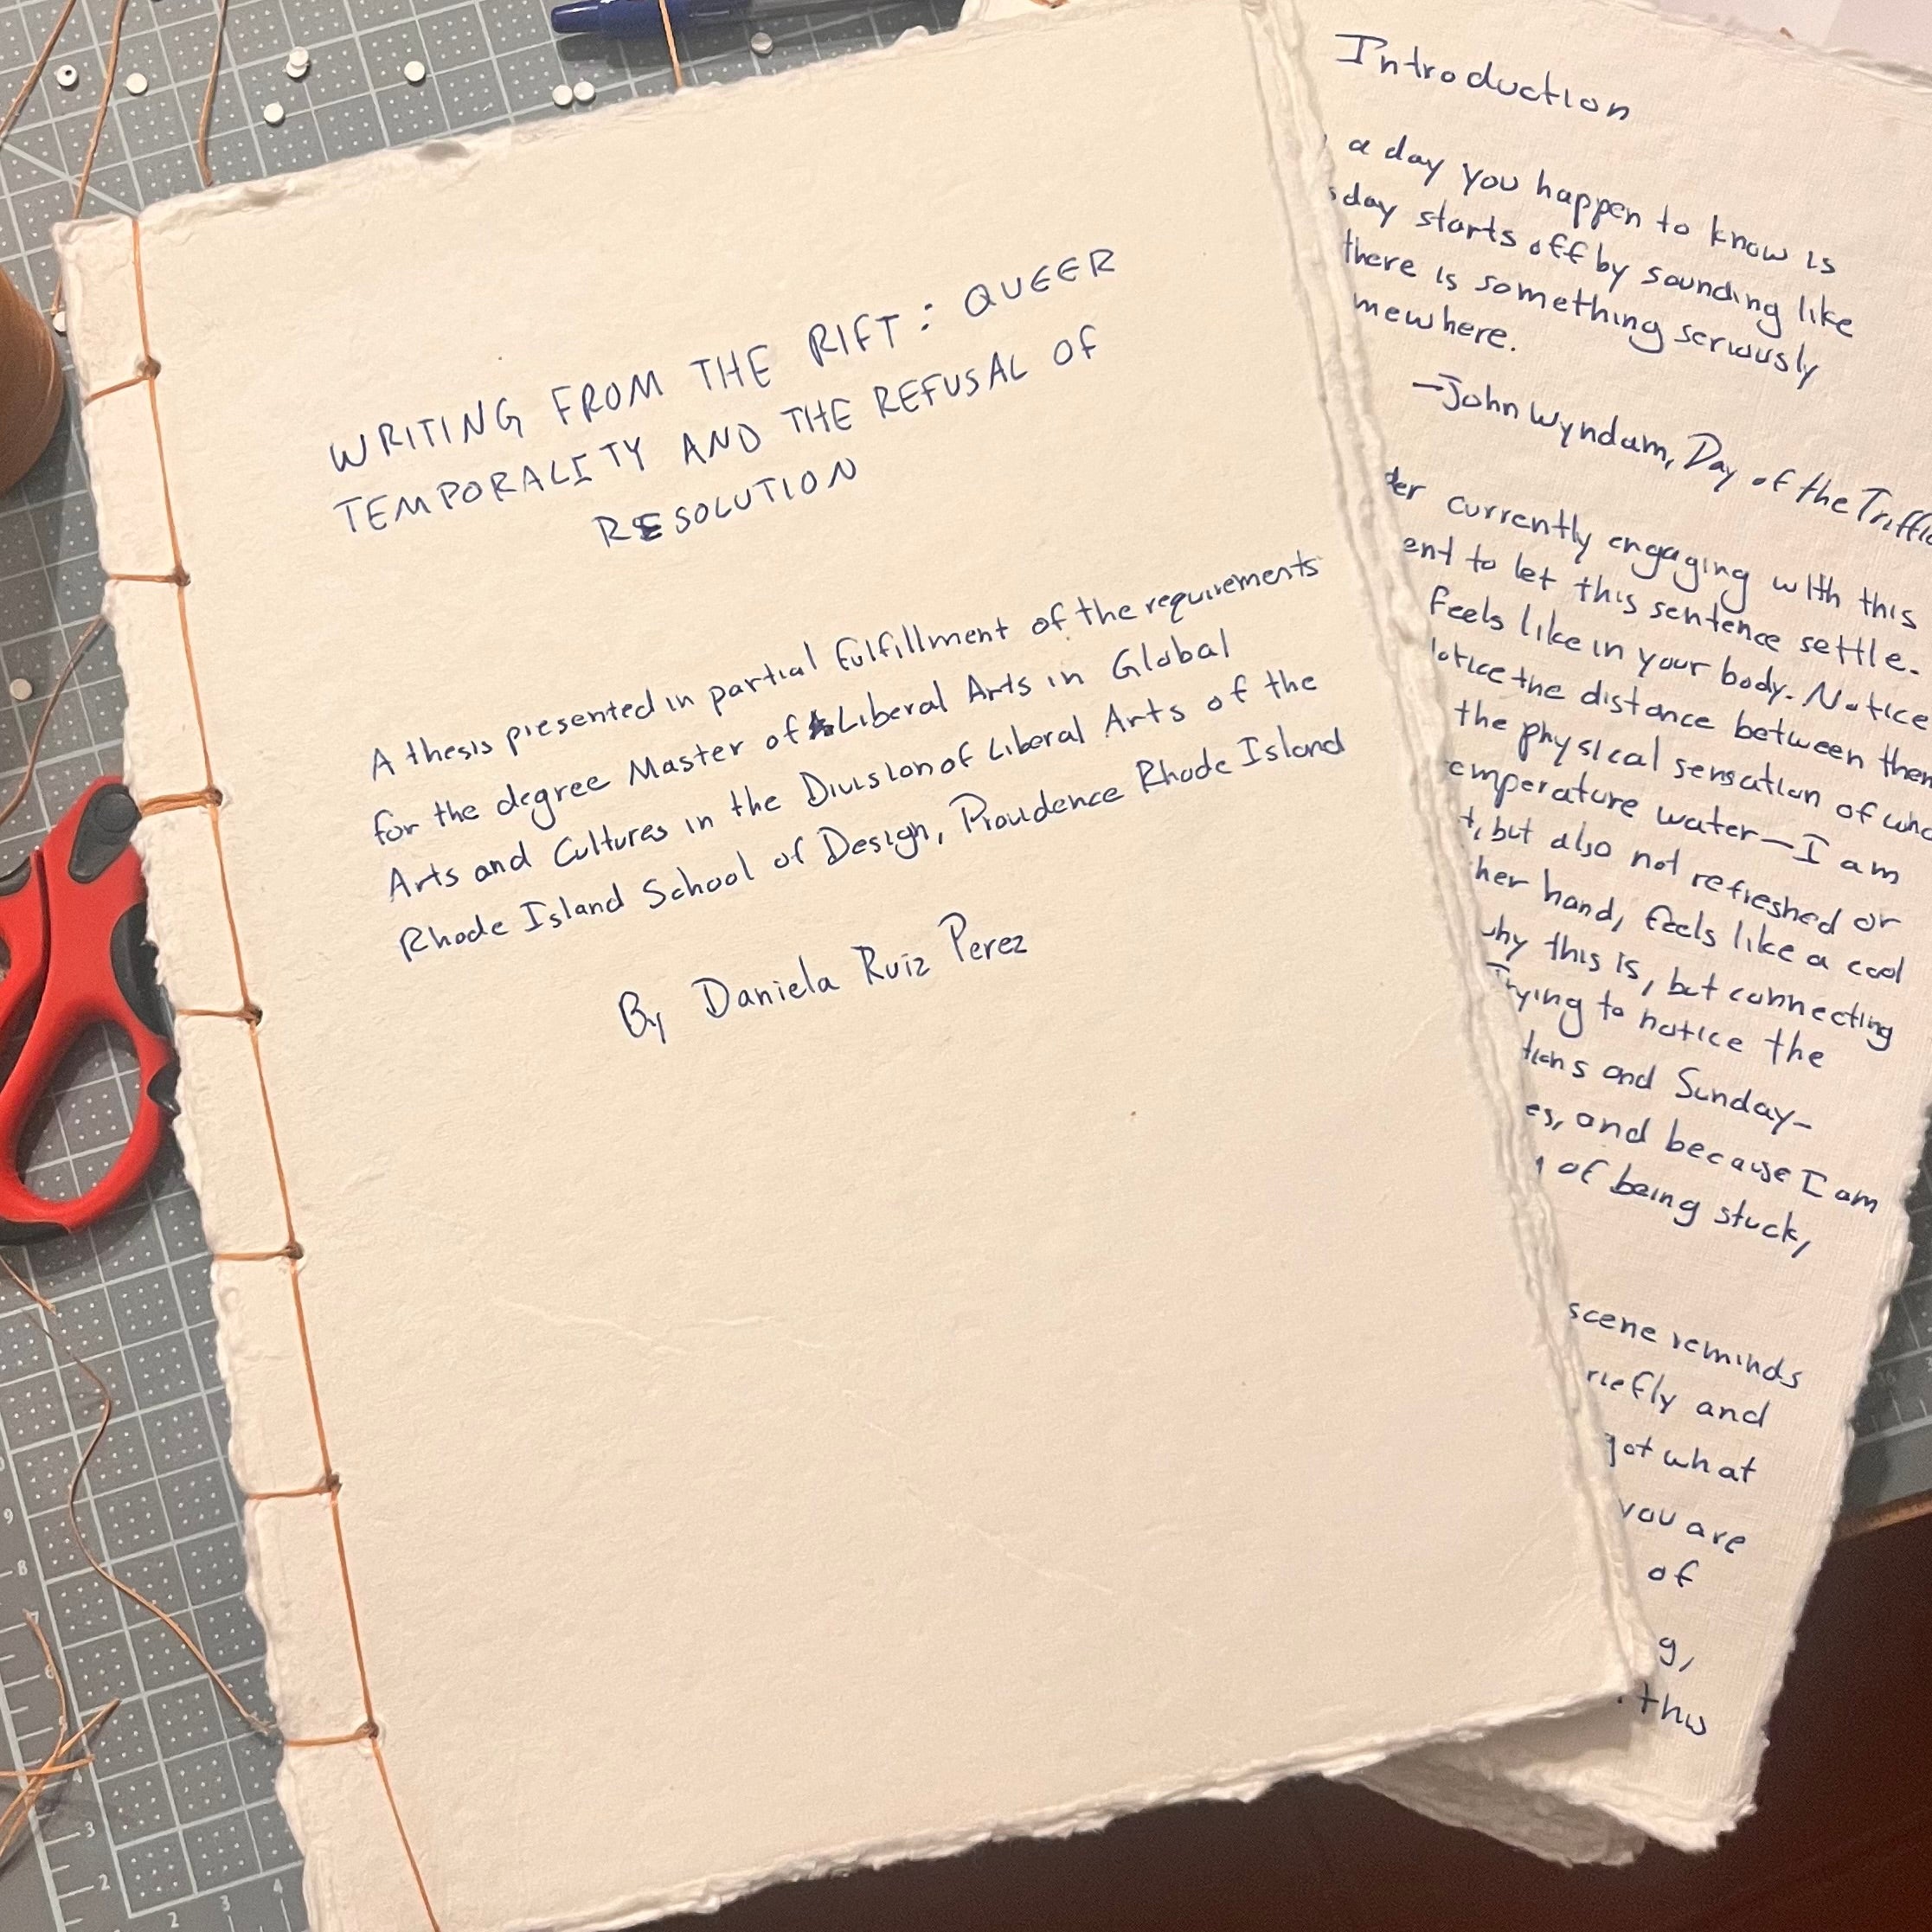 WRITING FROM THE RIFT: QUEER
TEMPORALITY AND THE REFUSAL OF
RESOLUTION
A thesis presented in partial fulfillment of the requirements
for the degree Master of Liberal Arts in Global
Arts and Cultures in the Division of Liberal Arts of the
Rhode Island School of Design, Providence Rhode Island
By Daniela Ruiz Perez
Introduction
a day you happen to know is
day starts off by sounding like
there is something seriously
mewhere.
—John Wyndam, Day of the Triffi
der currently engaging with this
ent to let this sentence settle.
feels like in your body. Notice
otice the distance between them
the physical sensation of
emperature water—I am
t, but also not refreshed or
her hand, feels like a cool
why this is, but connecting
Trying to notice the
tions and Sunday-
es, and because I am
of being stuck,
scene reminds
riefly and
got what
you are
of
g,
this
9
8
7
6
4
3
2
2
3
4